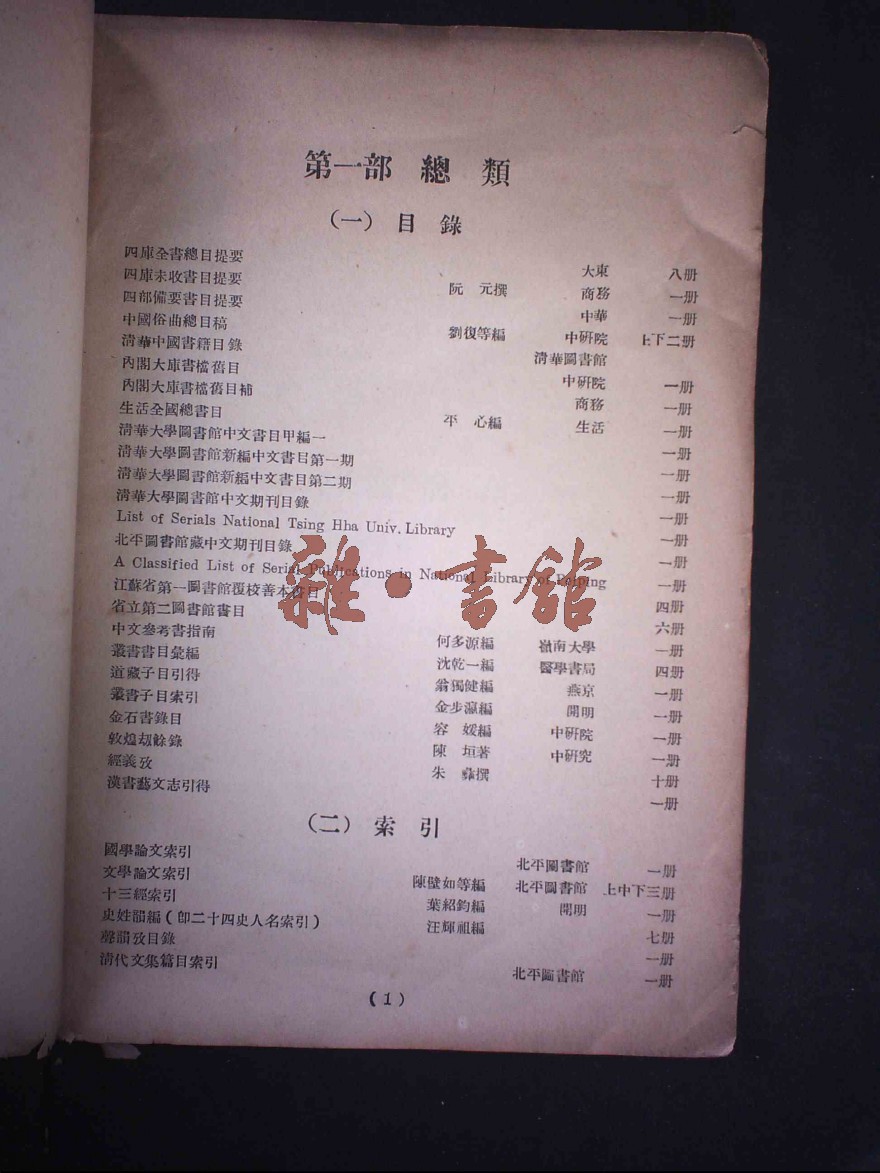 第一部 總 類
（一）目 錄
四庫全書總目提要 大東 八册
四庫未收書目提要 阮 元撰 商務 一册
四部備要書目提要 中華 一册
中國俗曲總目稿 劉復等編 中研院 上下二册
清華中國書籍目錄 清華圖書館
內閣大庫書檔舊目 中研院 一册
內閣大庫書檔舊目補 商務 一册
生活全國總書目 平 心編 生活 一册
清華大學圖書館中文書目甲編一 一册
清華大學圖書館新編中文書目第一期 一册
清華大學圖書館新編中文書目第二期 一册
清華大學圖書館中文期刊目錄 一册
List of Serials National Tsing Hba Univ. Library 一册
北平圖書館藏中文期刊目錄 一册
A Classified List of Serial Publications in National Library of Peiping 一册
江蘇省第一圖書館覆校善本書目 四册
省立第二圖書館書目 六册
中文參考書指南 何多源編 嶺南大學 一册
叢書書目彙編 沈乾一編 醫學書局 四册
道藏子目引得 翁獨健編 燕京 一册
叢書子目索引 金步瀛編 開明 一册
金石書錄目 容 媛編 中研院 一册
敦煌刼餘錄 陳 垣著 中研究 一册
經義攷 朱 彝撰 十册
漢書藝文志引得 一册
（二）索 引
國學論文索引 北平圖書館 一册
文學論文索引 陳璧如等編 北平圖書館 上中下三册
十三經索引 葉紹鈞編 開明 一册
史姓韻編（卽二十四史人名索引） 汪輝祖編 七册
聲韻攷目錄 一册
清代文集篇目索引 北平圖書館 一册
（1）
雜·書館